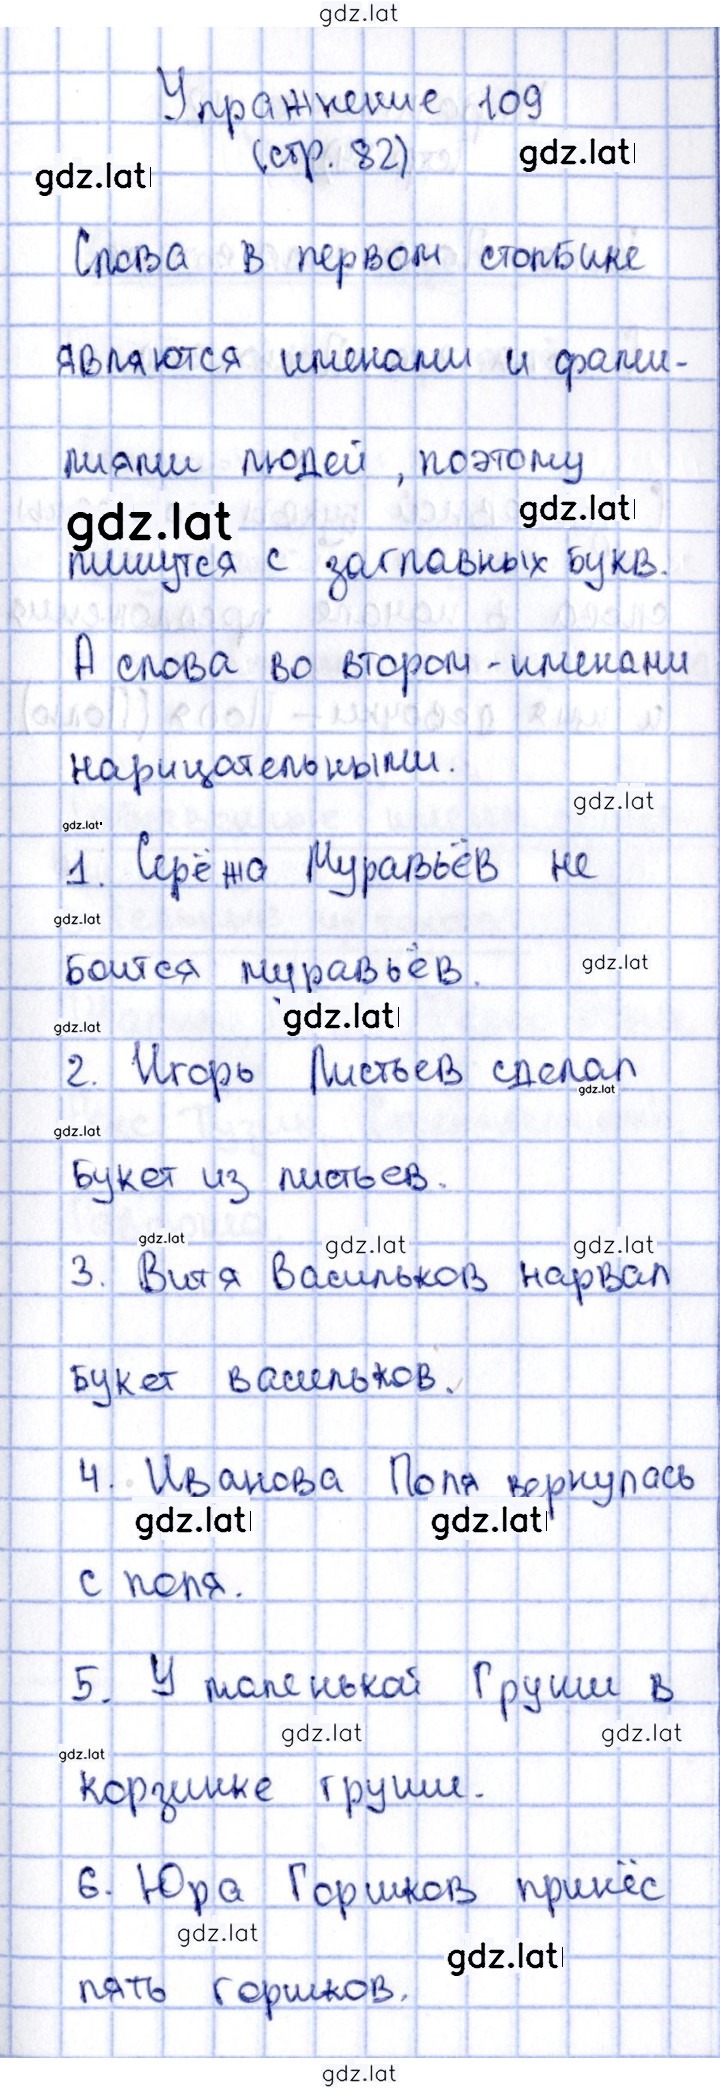 gdz.lat
Упражнение 109
(стр. 82)
gdz.lat
gdz.lat
Слова в первом столбике
являются именами и фами-
лиями людей, поэтому
gdz.lat
gdz.lat
пишутся с заглавных букв.
А слова во втором - именами
нарицательными.
gdz.lat
gdz.lat
1. Серёжа Муравьёв не
gdz.lat
боится муравьёв.
gdz.lat
gdz.lat
gdz.lat
2. Игорь Листьев сделал
gdz.lat
gdz.lat
букет из листьев.
gdz.lat
gdz.lat
gdz.lat
3. Витя Васильков нарвал
букет васильков.
4. Иванова Поля вернулась
gdz.lat
gdz.lat
с поля.
5. У маленькой Груши в
gdz.lat
gdz.lat
gdz.lat
корзинке груши.
6. Юра Горшков принёс
gdz.lat
gdz.lat
пять горшков.
gdz.lat